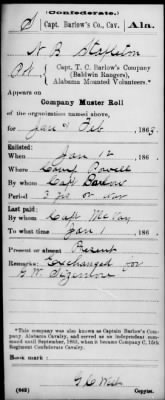 (Confederate.)
S Capt. Barlow's Co., Cav. Ala.
N. B. Stapleton
Pvt., Capt. T. C. Barlow's Company
(Baldwin Rangers),
Alabama Mounted Volunteers.*
Appears on
Company Muster Roll
of the organization named above,
for Jan & Feb, 1863.
Enlisted:
When Jan 12, 186
Where Camp Powell
By whom Capt Barlow
Period 3 yrs or War
Last paid:
By whom Capt McVoy
To what time Jan 1, 186
Present or absent Present
Remarks: Exchanged for
G. W.
*This company was also known as Captain Barlow's Company, Alabama Cavalry, and served as an independent command until September, 1863, when it became Company C, 15th Regiment Confederate Cavalry.
Book mark:
(642)
Copyist.